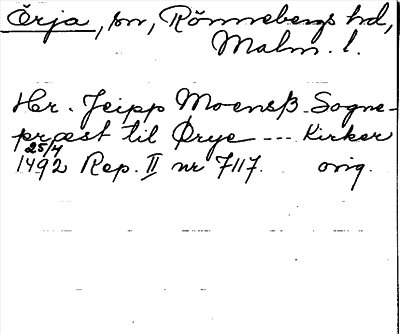 Örja, sn, Rönnebergs hd,
Malm. l.
Hr. Jeipp Moensß Sogne-
præst til Ørye --- Kirker
25/4
1492 Rep. II nr 7117. orig.